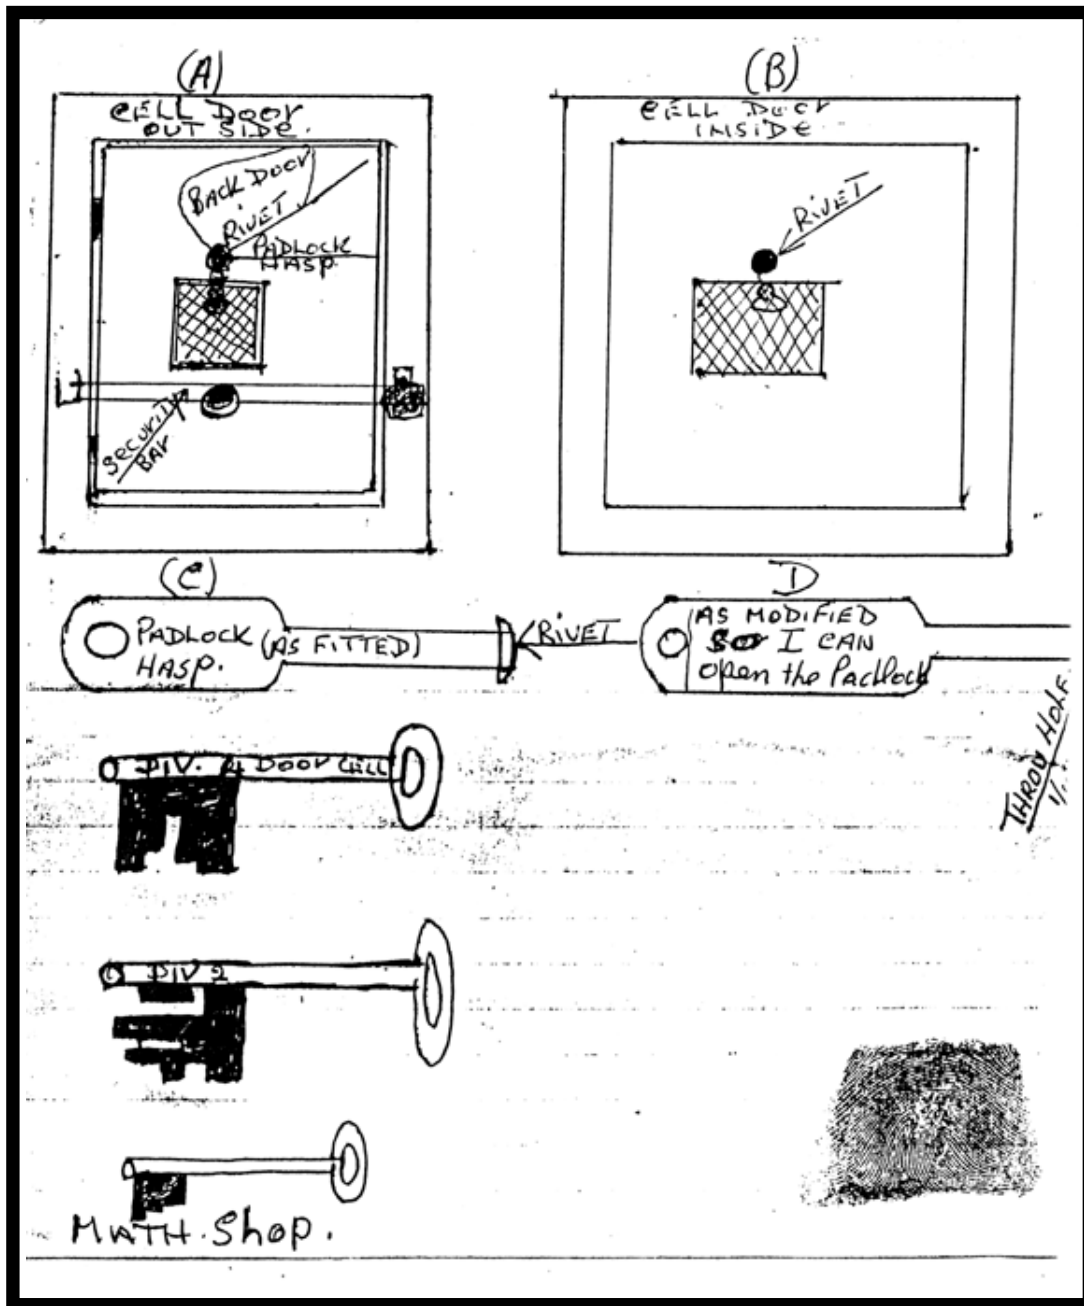 (A)
CELL DOOr
OUT SIDE.
BACK DOOr
RIVET
PADLOCK
HASP
SecuriTy
BAr
(B)
CELL DOOr
INSIDE
RIVET
(C)
PADLOCK (AS FITTED)
HASP.
RIVET
D
AS MODIFIED
SO I CAN
open the Padlock
THROW HOLE
DIV. 4 DOOR CELL
DIV 2
MATH. Shop.